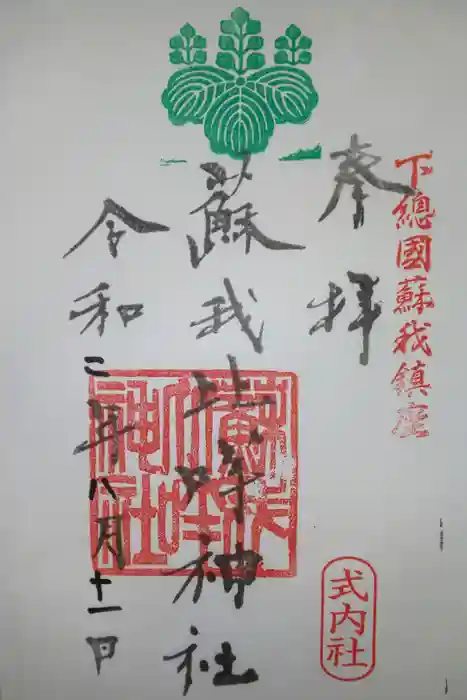 下總國蘇我鎮座
奉拝
蘇我比咩神社
令和二年八月十一日
蘇我比咩神社
式内社